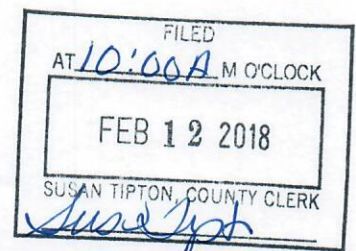 FILED
AT 10:00 A M O'CLOCK
FEB 12 2018
SUSAN TIPTON, COUNTY CLERK
Susan Tipton